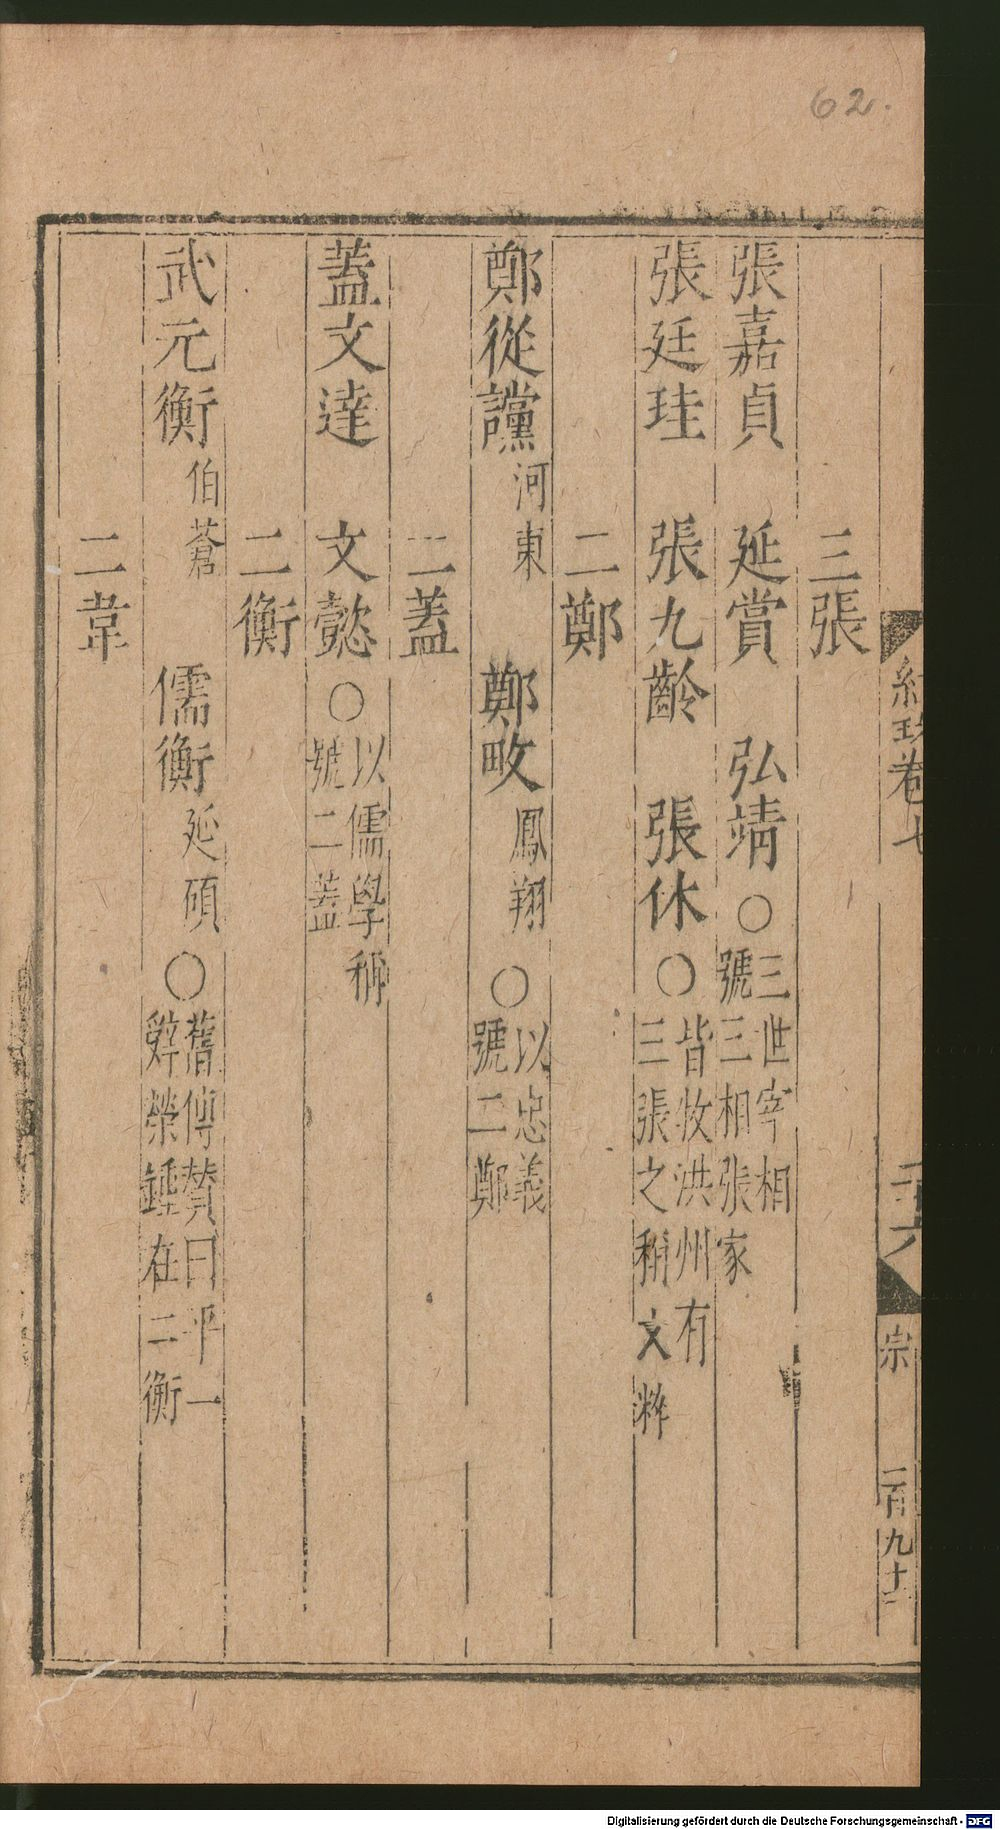 62.
三張
張嘉貞　延賞　弘靖○三世宰相
號三相張家
張廷珪　張九齡　張休○皆牧洪州有
三張之稱文粹
二鄭
鄭從讜河東　鄭畋鳳翔○以忠義
號二鄭
二蓋
蓋文達　文懿○以儒學稱
號二蓋
二衡
武元衡伯蒼　儒衡延碩○舊傳贊曰平一
辭榮錘在二衡
二韋
卷七
宗
二百九十
Digitalisierung gefördert durch die Deutsche Forschungsgemeinschaft - DFG